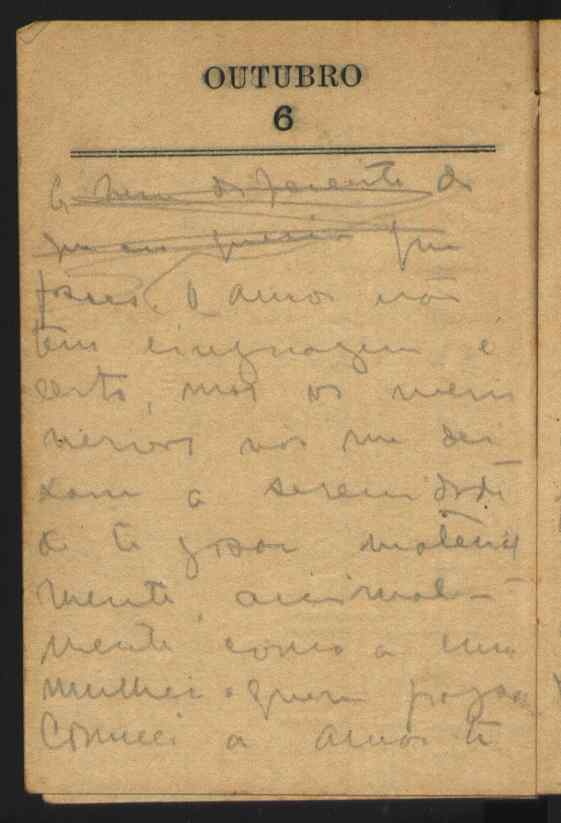 OUTUBRO
6
de
que
fosses. O amor não
tem linguagem é
certo, mas os meus
nervos não me dei
xam a serenidade
de te gosar material
mente, animal-
mente como a uma
mulher a quem pagasse
Comecei a amar-te